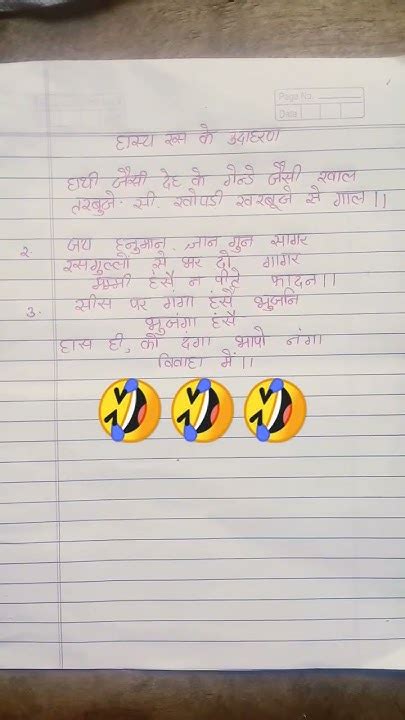 Page No.
Date
हास्य रस के उदाहरण
हाथी जैसी देह के गेन्डे जैसी खाल
तरबुजे सी खोपडी खरबूजे से गाल ।।
2. जय हनुमान ज्ञान गुन सागर
रसगुल्लो से भर दो गागर
मम्मी हंसै न पीटे फादन ।।
3. सीस पर गंगा हंसै भुजनि
भुजंगा हंसै
हास ही को दंगा भायो नंगा
विवाहा में ।।